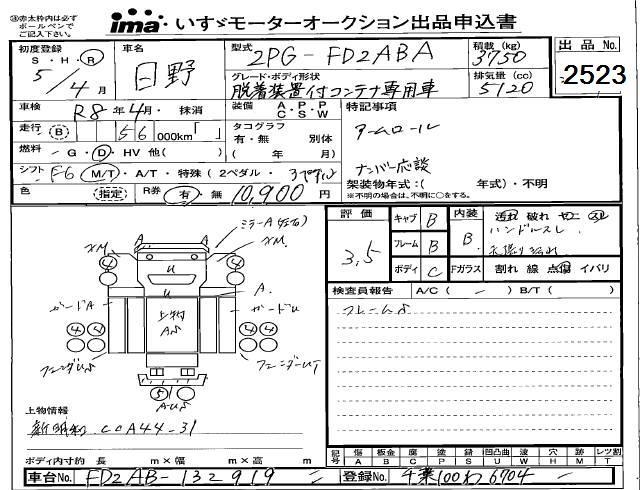 ※赤太枠内は必ず
ボールペンで
ご記入下さい。
ima いすゞモーターオークション出品申込書
初度登録 S・H・R 5年 4月
車名 日野
型式 2PG-FD2ABA
積載(kg) 3750
出品No. 2523
グレード・ボディ形状 脱着装置付コンテナ専用車
排気量(cc) 5120
車検 R8年4月・抹消
装備 A・P・P C・S・W
特記事項
アームロール
走行 (B) 56 000km「 」
タコグラフ 有・無 別体 ( 年 月)
燃料 ・G・D・HV 他( )
ナンバー応談
シフト F6 M/T・A/T・特殊(2ペダル・3ペダル)
架装物年式:( 年式)・不明
※不明の場合は、不明に○をする。
色 (指定) R券 有・無 10,900円
評価 3.5
キャブ B
フレーム B
ボディ C
内装 B
ハンドルスレ
Fガラス 割れ 線 点傷 イバリ
検査員報告 A/C( - ) B/T( )
フレームS
ミラーA(左右)
XM
XM
A
A
U
U
ガードA
A.
ガードU
上物
AS
4
4
4
4
4
4
フェンダーUS
フェンダーUT
5
AUS
上物情報
新明和 CCA44-31
ボディ内寸約 長 m×幅 m×高 m
記号 傷 板金 腐 塗 錆 凹凸曲 波 穴 跡 レツ割
A B C P S U W H M T
車台No. FD2AB-132919
登録No. 千葉100わ6704